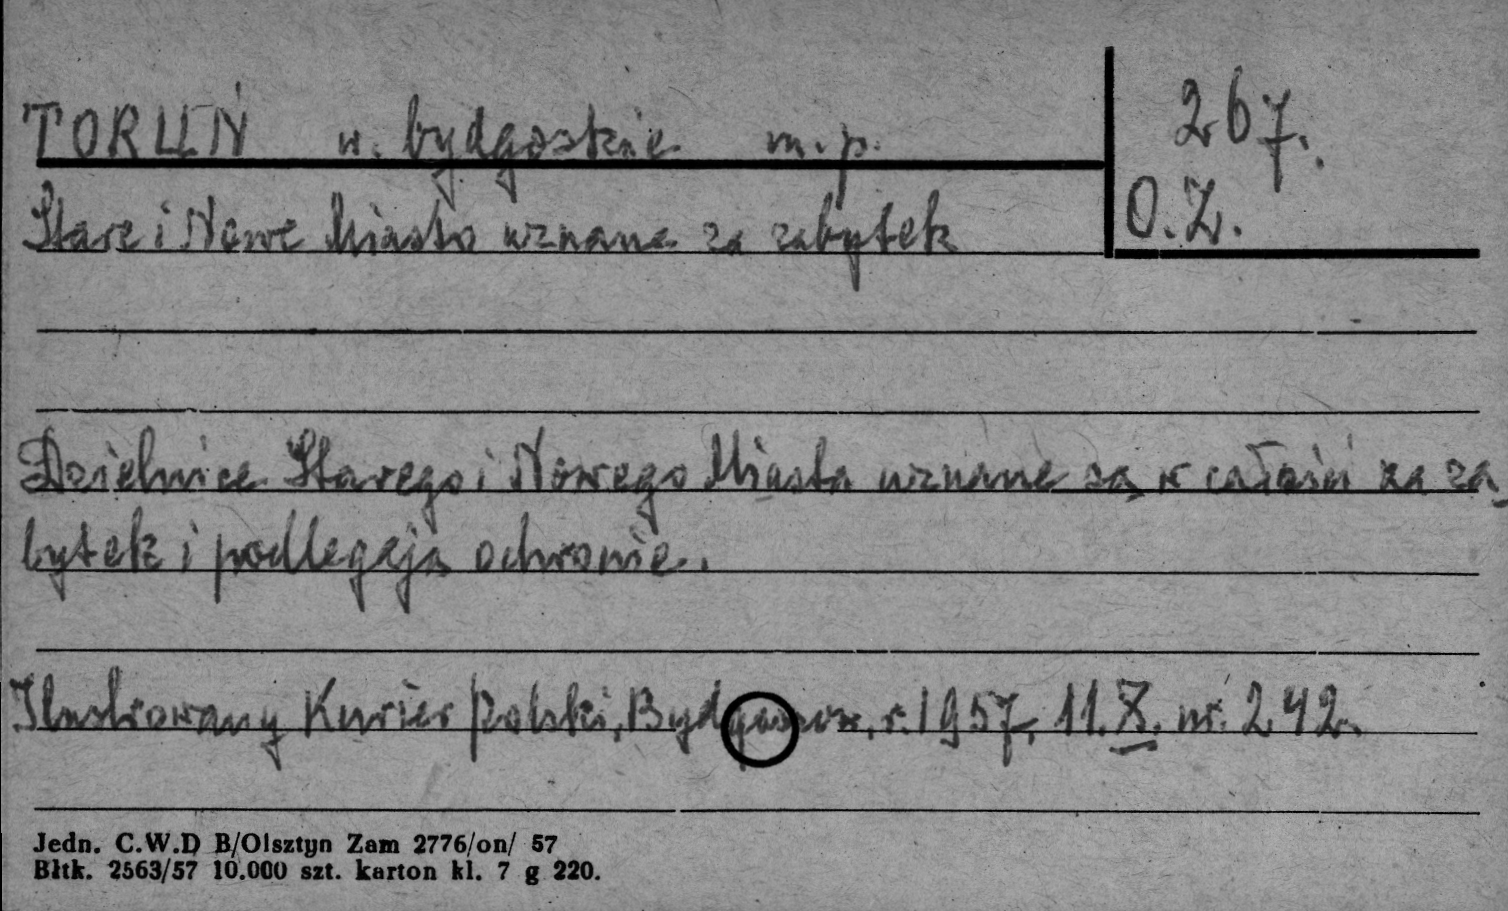 TORUŃ w. bydgoskie m.p.
267.
O.Z.
Stare i Nowe Miasto uznane za zabytek
Dzielnice Starego i Nowego Miasta uznane są w całości za za_
bytek i podlegają ochronie.
Ilustrowany Kurier Polski, Bydgoszcz, r. 1957, 11.X. nr. 242.
Jedn. C.W.D B/Olsztyn Zam 2776/on/ 57
Błtk. 2563/57 10.000 szt. karton kl. 7 g 220.